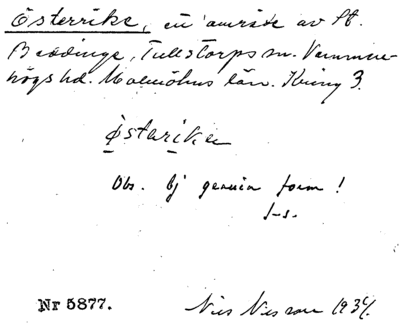 Österrike, ett område av St.
Beddinge, Tullstorps sn. Vemmen-
högs hd. Malmöhus län. Kring 3.
östarike
Obs. Ej genuin form!
I-s.
Nr 5877.
Nils Nilsson 1934.